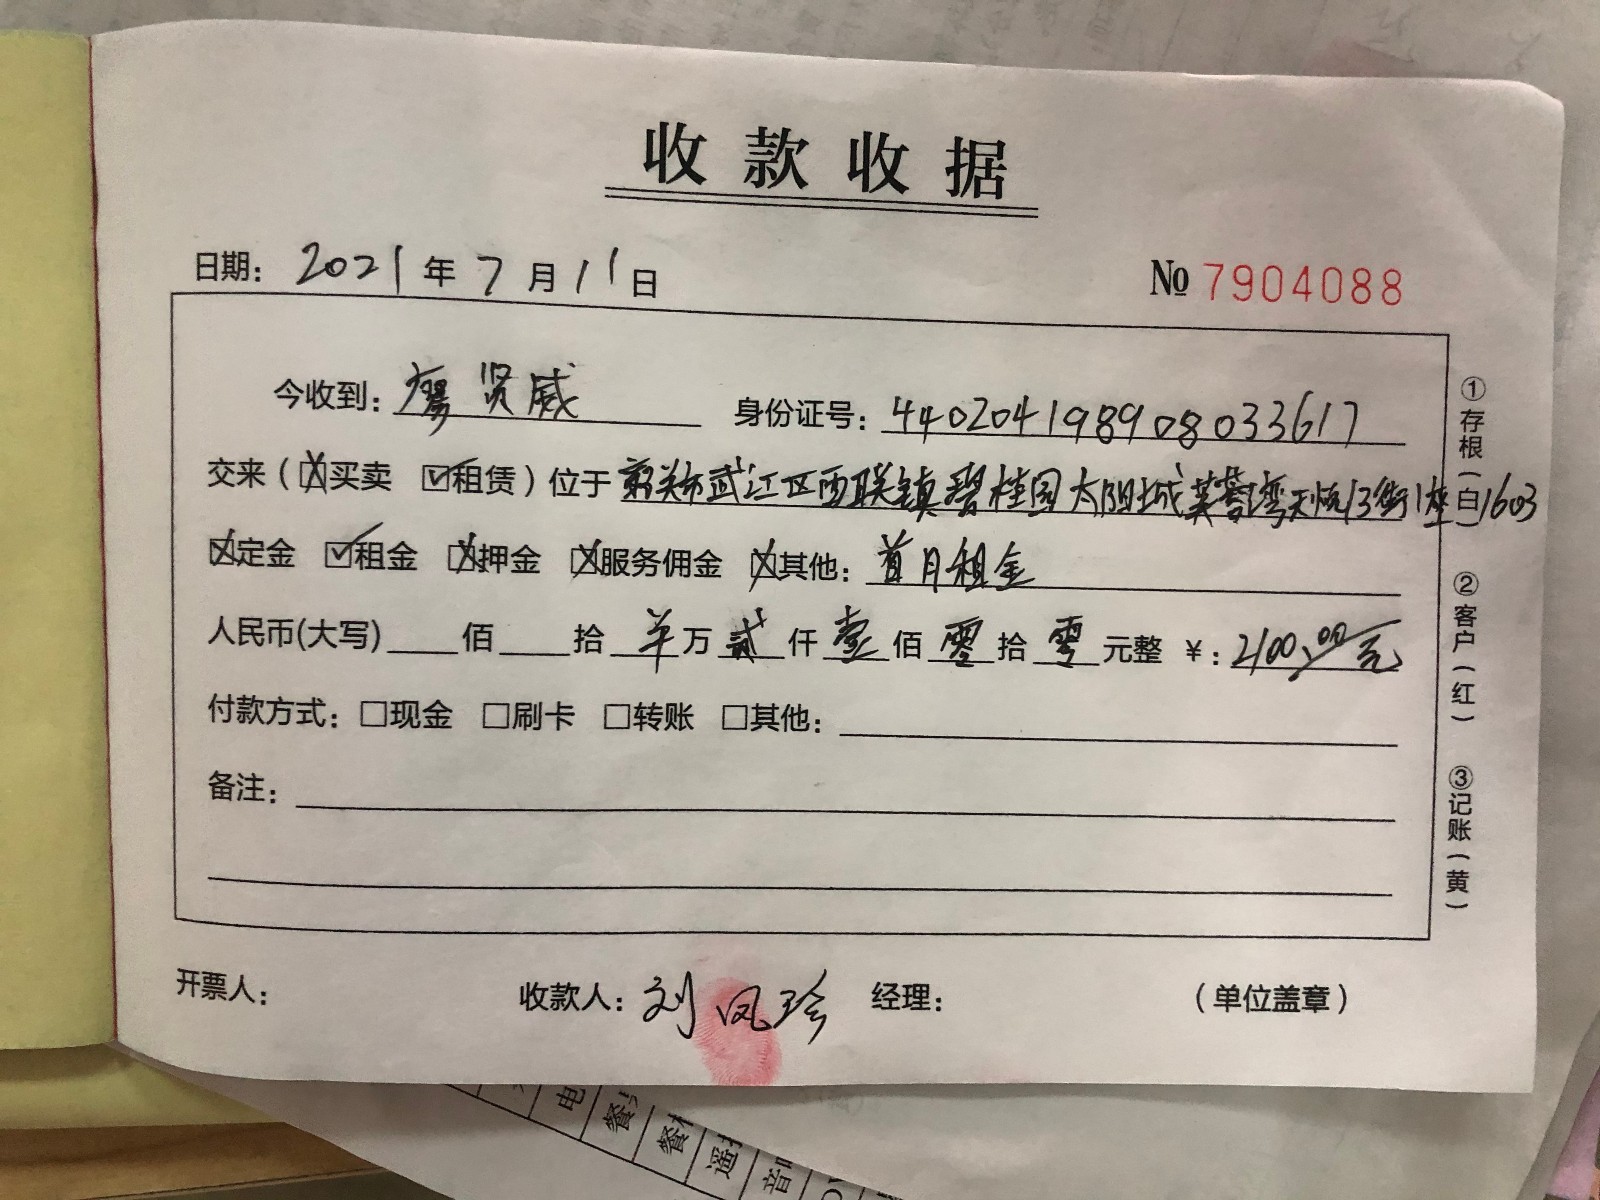 收款收据
日期： 2021 年 7 月 11 日 № 7904088
今收到：廖贤威 身份证号：440204198908033617
交来（☒买卖 ☑租赁）位于 韶关市武江区西联镇碧桂园太阳城芙蓉湾天悦13街1座1603
☒定金 ☑租金 ☒押金 ☒服务佣金 ☒其他：首月租金
人民币(大写)____佰____拾 羊 万 贰 仟 壹 佰 零 拾 零 元整 ¥：2100.00元
付款方式：□现金 □刷卡 □转账 □其他：
备注：
开票人： 收款人：刘凤珍 经理： （单位盖章）
①存根（白）
②客户（红）
③记账（黄）
电
餐
餐
遥
音